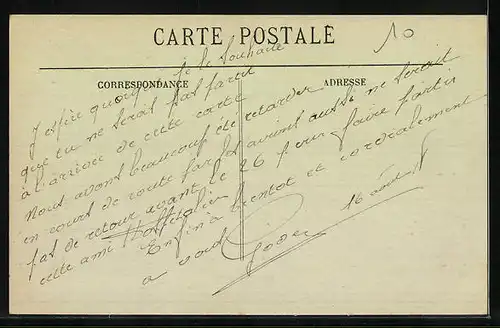 CARTE POSTALE
10
CORRESPONDANCE
ADRESSE
J espère quoique je le souhaite
que tu ne serais pas parti
à l'arrivée de cette carte
Nous avons beaucoup été retarder
en court de route avions aussi ne serait
pas de retour avant le 26 pour faire partir
cette ami
Enfin à bientot et cordialement
a vous
16 août